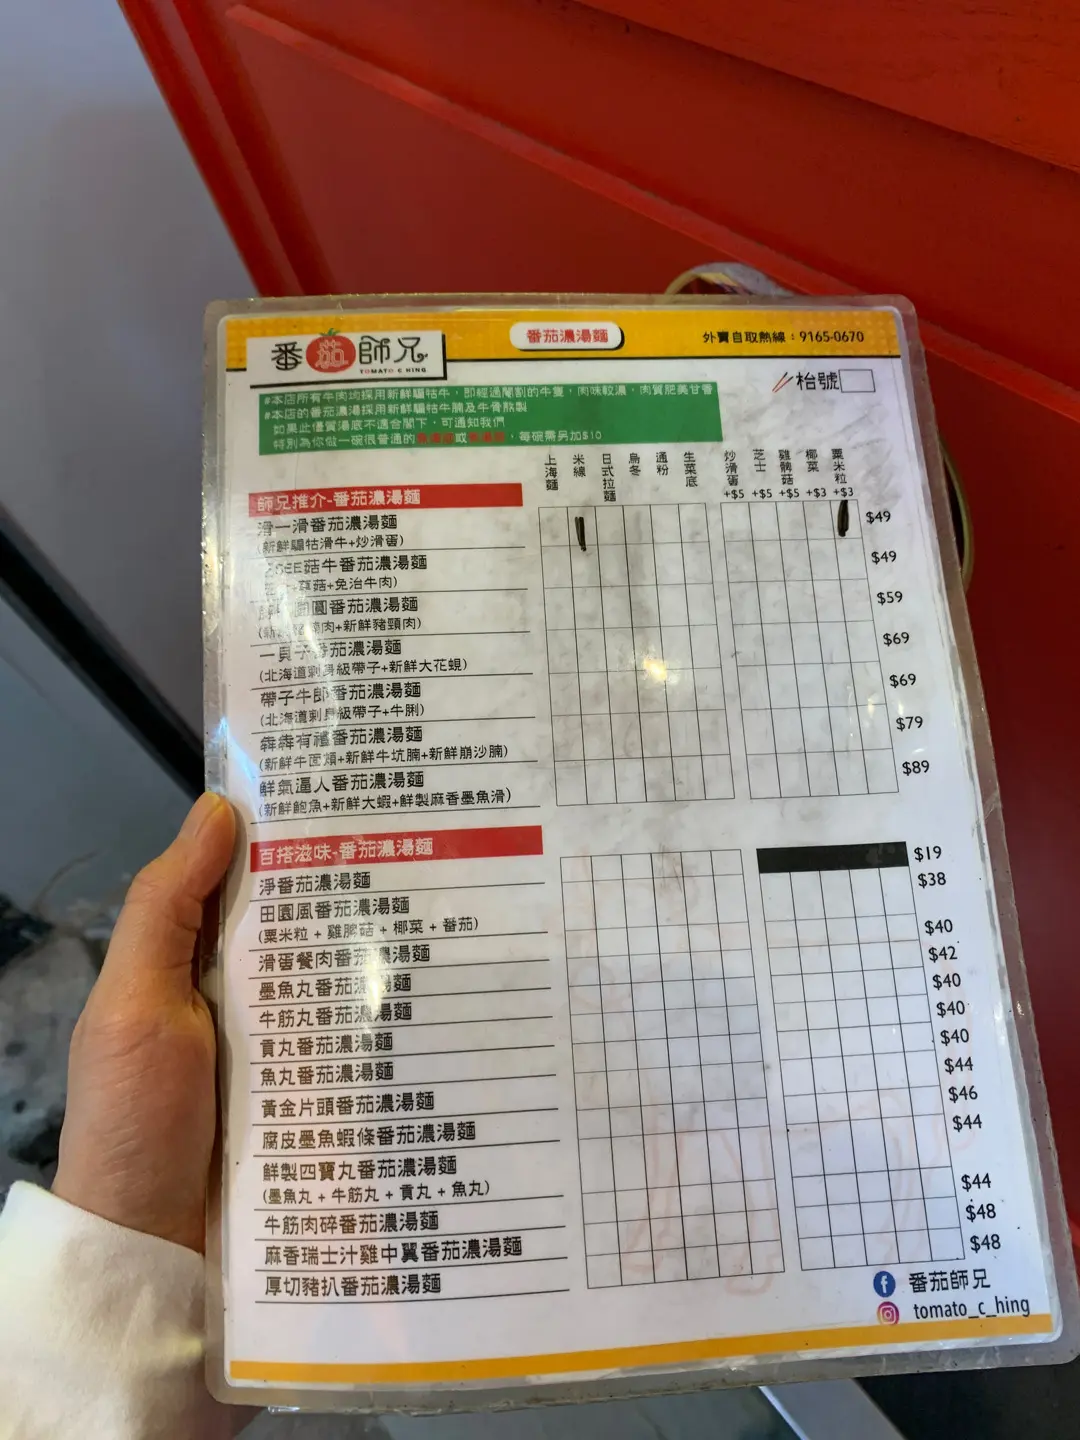 番茄師兄
TOMATO C HING
番茄濃湯麵
外賣自取熱線：9165-0670
枱號
#本店所有牛肉均採用新鮮騸牯牛，即經過閹割的牛隻，肉味較濃，肉質肥美甘香
#本店的番茄濃湯採用新鮮騸牯牛腩及牛骨熬製
如果此優質湯底不適合閣下，可通知我們
特別為你做一碗很普通的 或 ，每碗需另加$10
上海麵 米線 日式拉麵 烏冬 通粉 生菜底 炒滑蛋 +$5 芝士 +$5 雞髀菇 +$5 椰菜 +$3 粟米粒 +$3
師兄推介-番茄濃湯麵
滑一滑番茄濃湯麵 $49
(新鮮騸牯滑牛+炒滑蛋)
菇牛番茄濃湯麵 $49
+蘑菇+免治牛肉)
圓番茄濃湯麵 $59
肉+新鮮豬頸肉)
一貝子番茄濃湯麵 $69
(北海道刺身級帶子+新鮮大花蜆)
帶子牛郎番茄濃湯麵 $69
(北海道刺身級帶子+牛脷)
犇犇有禮番茄濃湯麵 $79
(新鮮牛面頰+新鮮牛坑腩+新鮮崩沙腩)
鮮氣逼人番茄濃湯麵 $89
(新鮮鮑魚+新鮮大蝦+鮮製麻香墨魚滑)
百搭滋味-番茄濃湯麵
淨番茄濃湯麵 $19
田園風番茄濃湯麵 $38
(粟米粒 + 雞髀菇 + 椰菜 + 番茄)
滑蛋餐肉番茄濃湯麵 $40
墨魚丸番茄濃湯麵 $42
牛筋丸番茄濃湯麵 $40
貢丸番茄濃湯麵 $40
魚丸番茄濃湯麵 $40
黃金片頭番茄濃湯麵 $44
腐皮墨魚蝦條番茄濃湯麵 $46
鮮製四寶丸番茄濃湯麵 $44
(墨魚丸 + 牛筋丸 + 貢丸 + 魚丸)
牛筋肉碎番茄濃湯麵 $44
麻香瑞士汁雞中翼番茄濃湯麵 $48
厚切豬扒番茄濃湯麵 $48
番茄師兄
tomato_c_hing